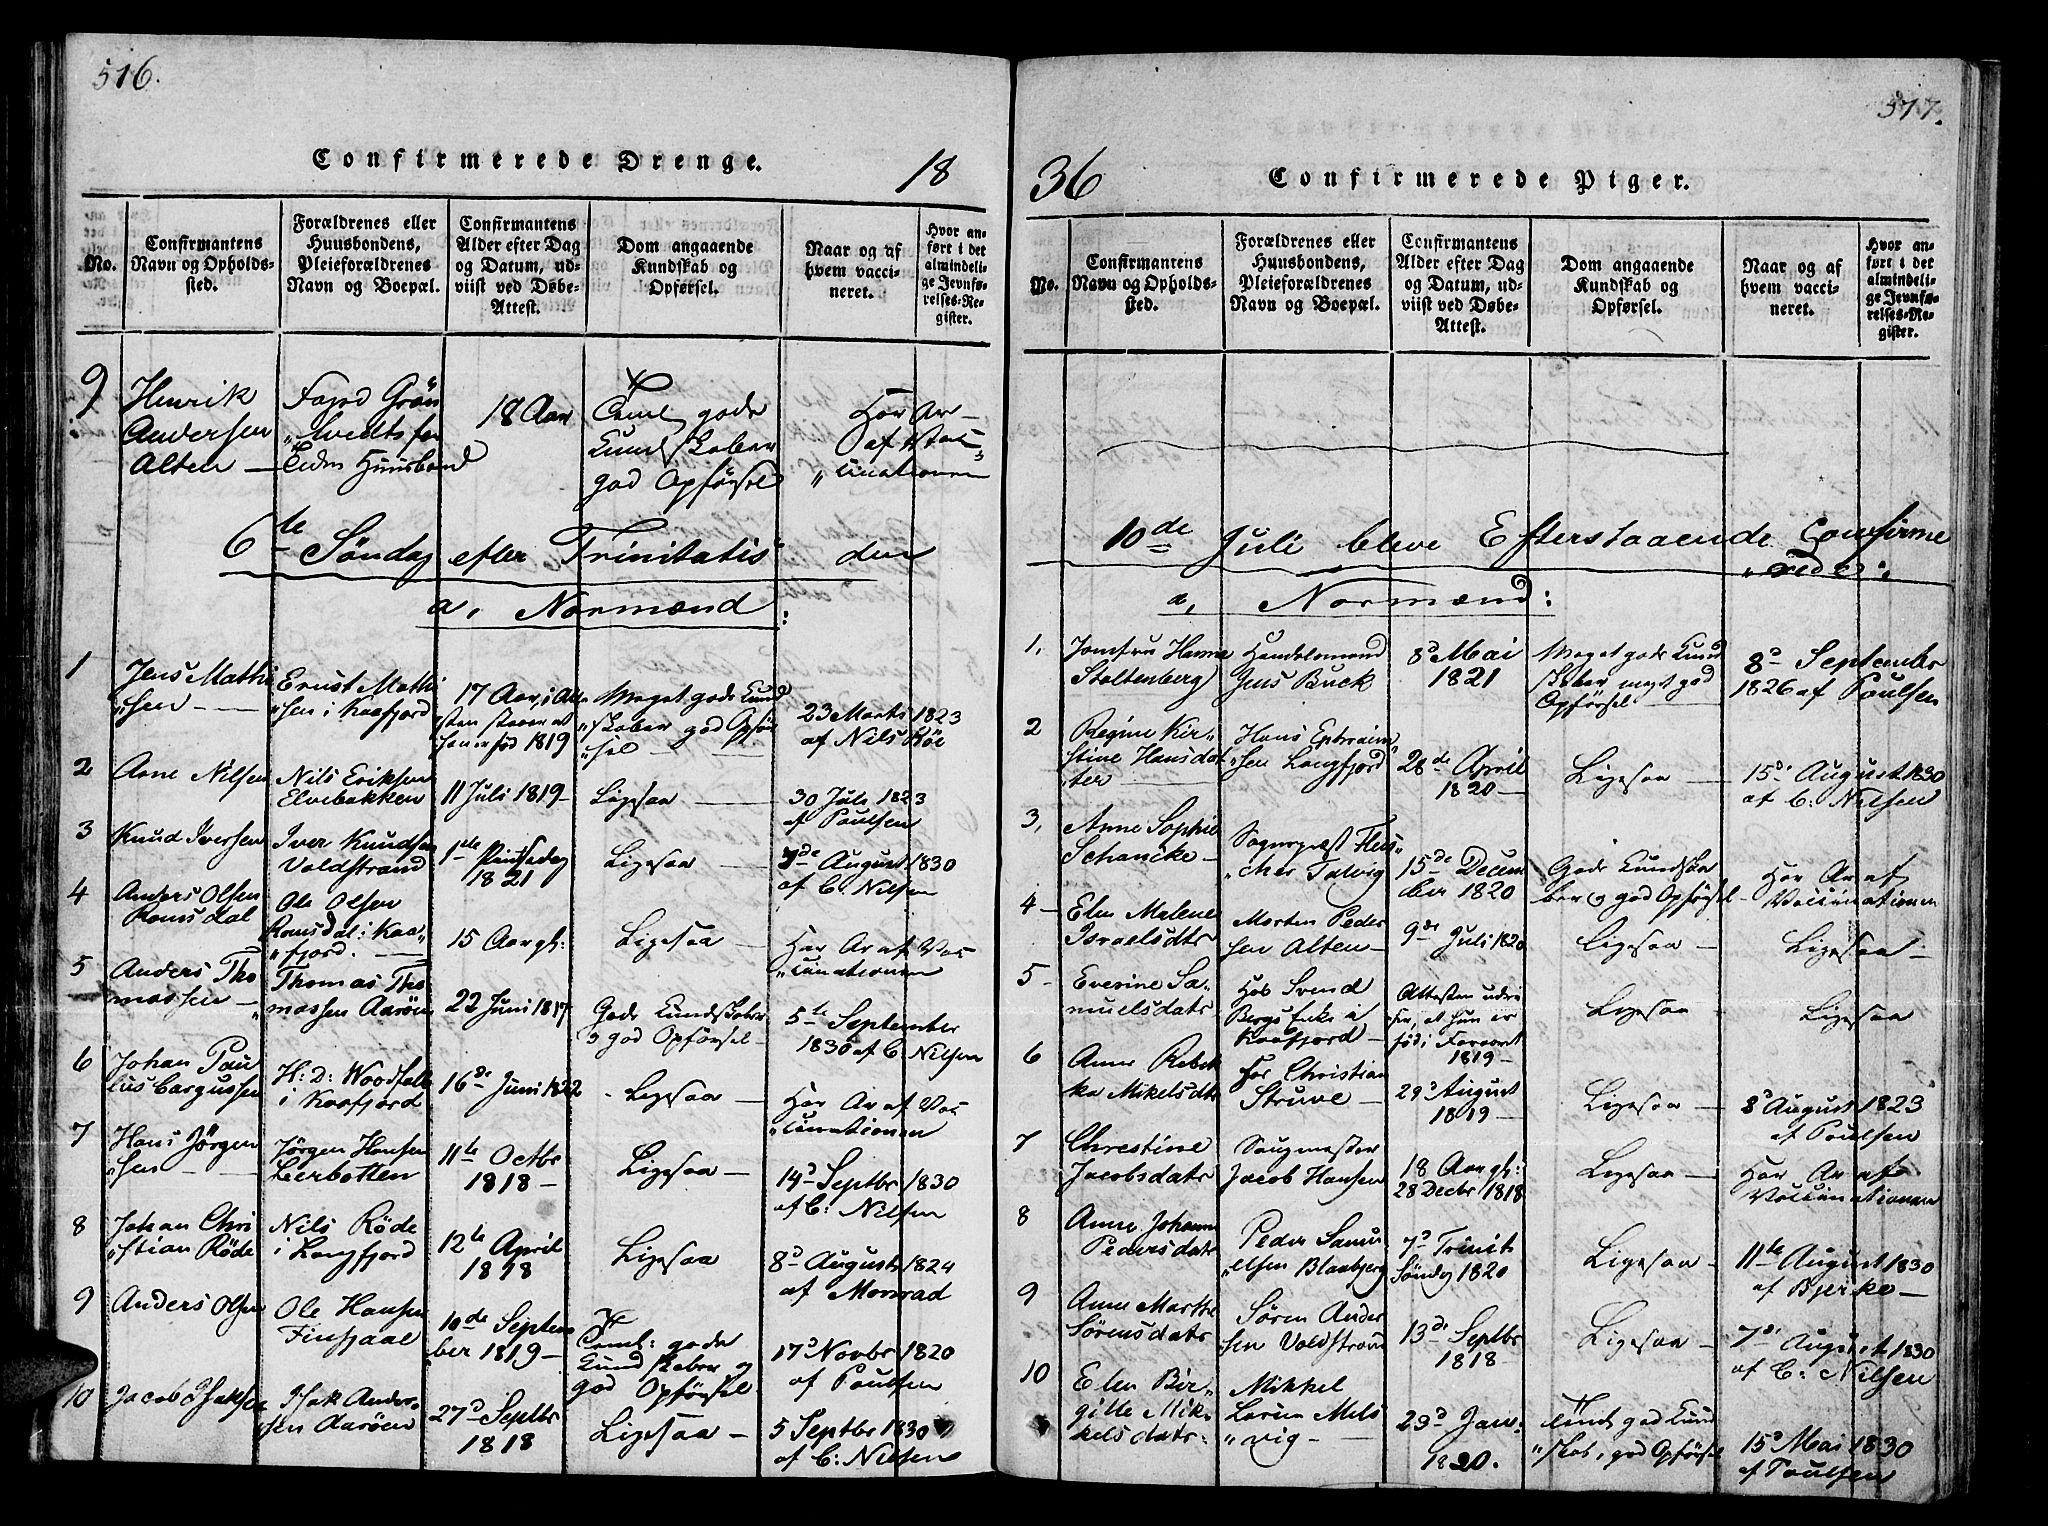 516.
Confirmerede Drenge.
18
No.
Confirmantens
Navn og Opholds-
sted.
Forældrenes eller
Huusbondens,
Pleieforældrenes
Navn og Boepæl.
Confirmantens
Alder efter Dag
og Datum, ud-
viist ved Døbe-
Attest.
Dom angaaende
Kundskab og
Opførsel.
Naar og af
hvem vacci-
neret.
Hvor an-
ført i det
almindeli-
ge Jevnfø-
relses-Re-
gister.
9
Henrik
Andersen
Alten —
18 Aar
gode
Kundskaber
god Opførsel
Har Ar-
af Vac-
cinationen
6te Søndag efter Trinitatis den
a, Normænd:
1
Jens Mathi
"sen —
Ernst Mathi
"sen i Kaafjord
17 Aar, i At-
født 1819
Meget gode Kund
"skaber god Opfør
"sel —
23 Marts 1823
af Nils Röe
2
Arne Nilsen
Nils Eriksen
Elvebakken
11 Juli 1819 —
Ligesaa —
30 Juli 1823
af Poulsen
3
Knud Iversen
Iver Knudsen
Voldstrand
1ste Pintsedag
1821
Ligesaa —
7de August 1830
af C: Nilsen
4
Anders Olsen
Romsdal
Ole Olsen
Romsdal i Kaa-
"fjord. —
15 Aar gl:
Ligesaa —
Har Ar af Vac
"cinationen
5
Anders Tho
massen —
Thomas Tho
massen Aaröen
22 Juni 1817
Gode Kundskaber
og god Opförsel —
5te September
1830 af C: Nilsen
6
Johan Pau
lus Cargussen
H: D: Woodfall
i Kaafjord
16de Juni 1822
Ligesaa —
Har Ar af Vac
"cinationen
7
Hans Jörgen
"sen —
Jörgen Hansen
Leerbotten
11te Octbr
1818 —
Ligesaa —
14d Septbr 1830
af C: Nilsen
8
Johan Chri
"stian Röde
Nils Röde
i Langfjord
12te April
1818
Ligesaa
8d August 1824
af Monrad
9
Anders Olsen
Ole Hansen
10de Septem
ber 1819 —
Teml: gode
Kundskaber og
god Opförsel.
17d Novbr 1820
af Poulsen
10
Jacob Isaksen
Isak Ander-
sen Aaröen
27d Septbr
1818
Ligesaa —
5 Septbr 1830
af C: Nilsen
577.
36
Confirmerede Piger.
No.
Confirmantens
Navn og Opholds-
sted.
Forældrenes eller
Huusbondens,
Pleieforældrenes
Navn og Boepæl.
Confirmantens
Alder efter Dag
og Datum, ud-
viist ved Døbe-
Attest.
Dom angaaende
Kundskab og
Opførsel.
Naar og af
hvem vacci-
neret.
Hvor an-
ført i det
almindeli-
ge Jevnfø-
relses-Re-
gister.
10de Juli bleve Efterstaaende Confirme
"rede:
a, Normænd:
1,
Jomfru Hanna
Stoltenberg
Handelsmand
Jens Buck
8d Mai
1821
Meget gode Kund
skaber meget god
Opförsel —
8d September
1826 af Poulsen
2
Regine Kir-
stine Hansdat
"ter —
Hans Ephraim
"sen Langfjord
28de April
1820 —
Ligesaa —
15d August 1830
af C: Nilsen
3,
Anne Sophie
Schancke —
Sognepræst Fleis
"cher Talvig
15de Decem
ber 1820
Gode Kundska
ber og god Opförsel —
Har Ar af
Vaccinationen
4 —
Elen Malene
Israelsdtr
Morten Peder
sen Alten —
9de Juli 1820
Ligesaa —
Ligesaa —
5 —
Everine Sa-
muelsdatr
Hos Svend
Bergs Enke i
Kaafjord —
Attesten udvi
ser, at hun er
fød i Foraaret
1819 —
Ligesaa —
Ligesaa
6
Anne Rebek
ka Mikelsdtr
For Christian
Struve —
29d August
1819 —
Ligesaa —
8d August 1823
af Poulsen
7
Chrestine
Jacobsdatr
Saugmester
Jacob Hansen
18 Aar gl:
28 Decbr 1818
Ligesaa —
Har Ar af
Vaccinationen
8
Anne Johanne
Pedersdatr
Peder Samu
"elsen Blaabjerg
7d Trinit
Söndg 1820
Ligesaa —
11te August 1830
af Bjerke —
9
Anne Marthe
Sörensdatr
Sören Ander
sen Voldstrand
13de Septbr
1818 —
Ligesaa —
7de August 1830
af C: Nilsen
10
Elen Bir-
gitte Mik-
kelsdatr.
Mikkel
Larsen Mels
"vig —
29d Jan:
1820.
god Kund
"skab, god Opförsel
15d Mai 1830
af Poulsen